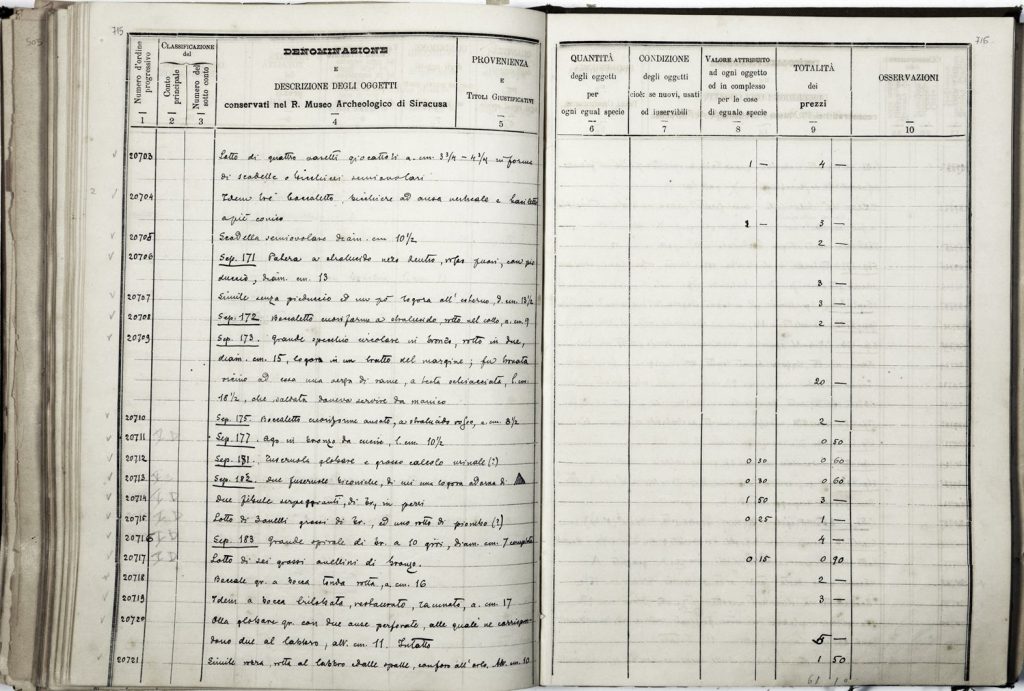 505
715
Numero d'ordine progressivo
CLASSIFICAZIONE
del
Conto principale
Numero del sotto conto
DENOMINAZIONE
E
DESCRIZIONE DEGLI OGGETTI
conservati nel R. Museo Archeologico di Siracusa
PROVENIENZA
E
TITOLI GIUSTIFICATIVI
1 2 3 4 5
20703 Lotto di quattro vasetti giocattoli a. cm. 3 3/4 – 4 3/4 in forme
di scodelle o bicchieri semiovolari
20704 Idem tre boccaletto, bicchiere ad ansa verticale e
a piè conico
20705 Scodella semiovolare diam. cm. 10 1/2
20706 Sep. 171 Patera a stralucido nero dentro, rosso fuori, con pie
duccio, diam. cm. 13
20707 Simile senza pieduccio ed un pò logora all'esterno, d. cm. 13 1/2
20708 Sep. 172. Boccaletto cuoriforme a stralucido, rotto nel collo, a. cm. 9
20709 Sep. 173. Grande specchio circolare in bronzo, rotto in due,
diam. cm. 15, logora in un tratto del margine; fu trovata
vicino ad esso una verga di rame, a testa schiacciata, l. cm.
18 1/2, che saldata doveva servire da manico
20710 Sep. 175. Boccaletto cuoriforme ansato, a stralucido rosso, a. cm. 8 1/2
20711 Sep. 177. Ago in bronzo da cucire, l. cm. 10 1/2
20712 Sep. 181. Fuseruola globare e grosso calcolo urinale (?)
20713 Sep. 182. due fuseruole biconiche, di cui una logora adorna di
20714 due fibule serpeggianti, di br., in pezzi
20715 Lotto di 3 anelli grossi di br., ed uno rotto di piombo (?)
20716 Sep. 183 Grande spirale di br. a 10 giri, diam. cm. 7 completa
20717 Lotto di sei grossi anellini di bronzo.
20718 Boccale gr. a bocca tonda rotta, a. cm. 16
20719 Idem a bocca trilobata, restaurato, a. cm. 17
20720 Olla globare gr. con due anse perforate, alle quali ne corrispon-
dono due al labbro, alt. cm. 11. Intatto
20721 Simile rozza, rotta al labbro e dalle spalle, con fori all'orlo. Alt. cm. 10
715
QUANTITÀ
degli oggetti
per
ogni egual specie
CONDIZIONE
degli oggetti
cioè: se nuovi, usati
od inservibili
VALORE ATTRIBUITO
ad ogni oggetto
od in complesso
per le cose
di eguale specie
TOTALITÀ
dei
prezzi
OSSERVAZIONI
6 7 8 9 10
1 — 4 —
1 — 3 —
2 —
3 —
3 —
2 —
20 —
2 —
0 50
0 30 0 60
0 30 0 60
1 50 3 —
0 25 1 —
4 —
0 15 0 90
2 —
3 —
5 —
1 50
61